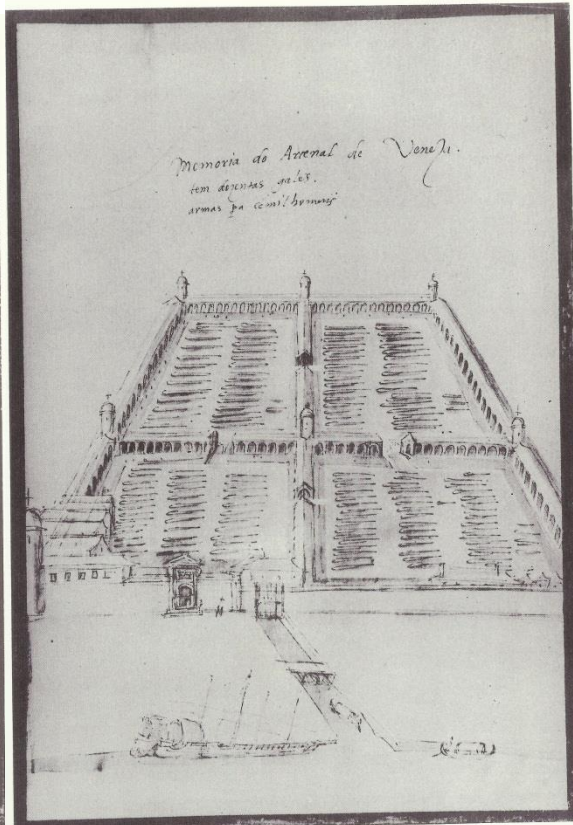 Memoria do Arsenal de Veneza.
tem dozentas galés.
armas pa cẽ mil homens